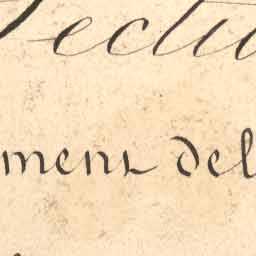 ectu
ment del